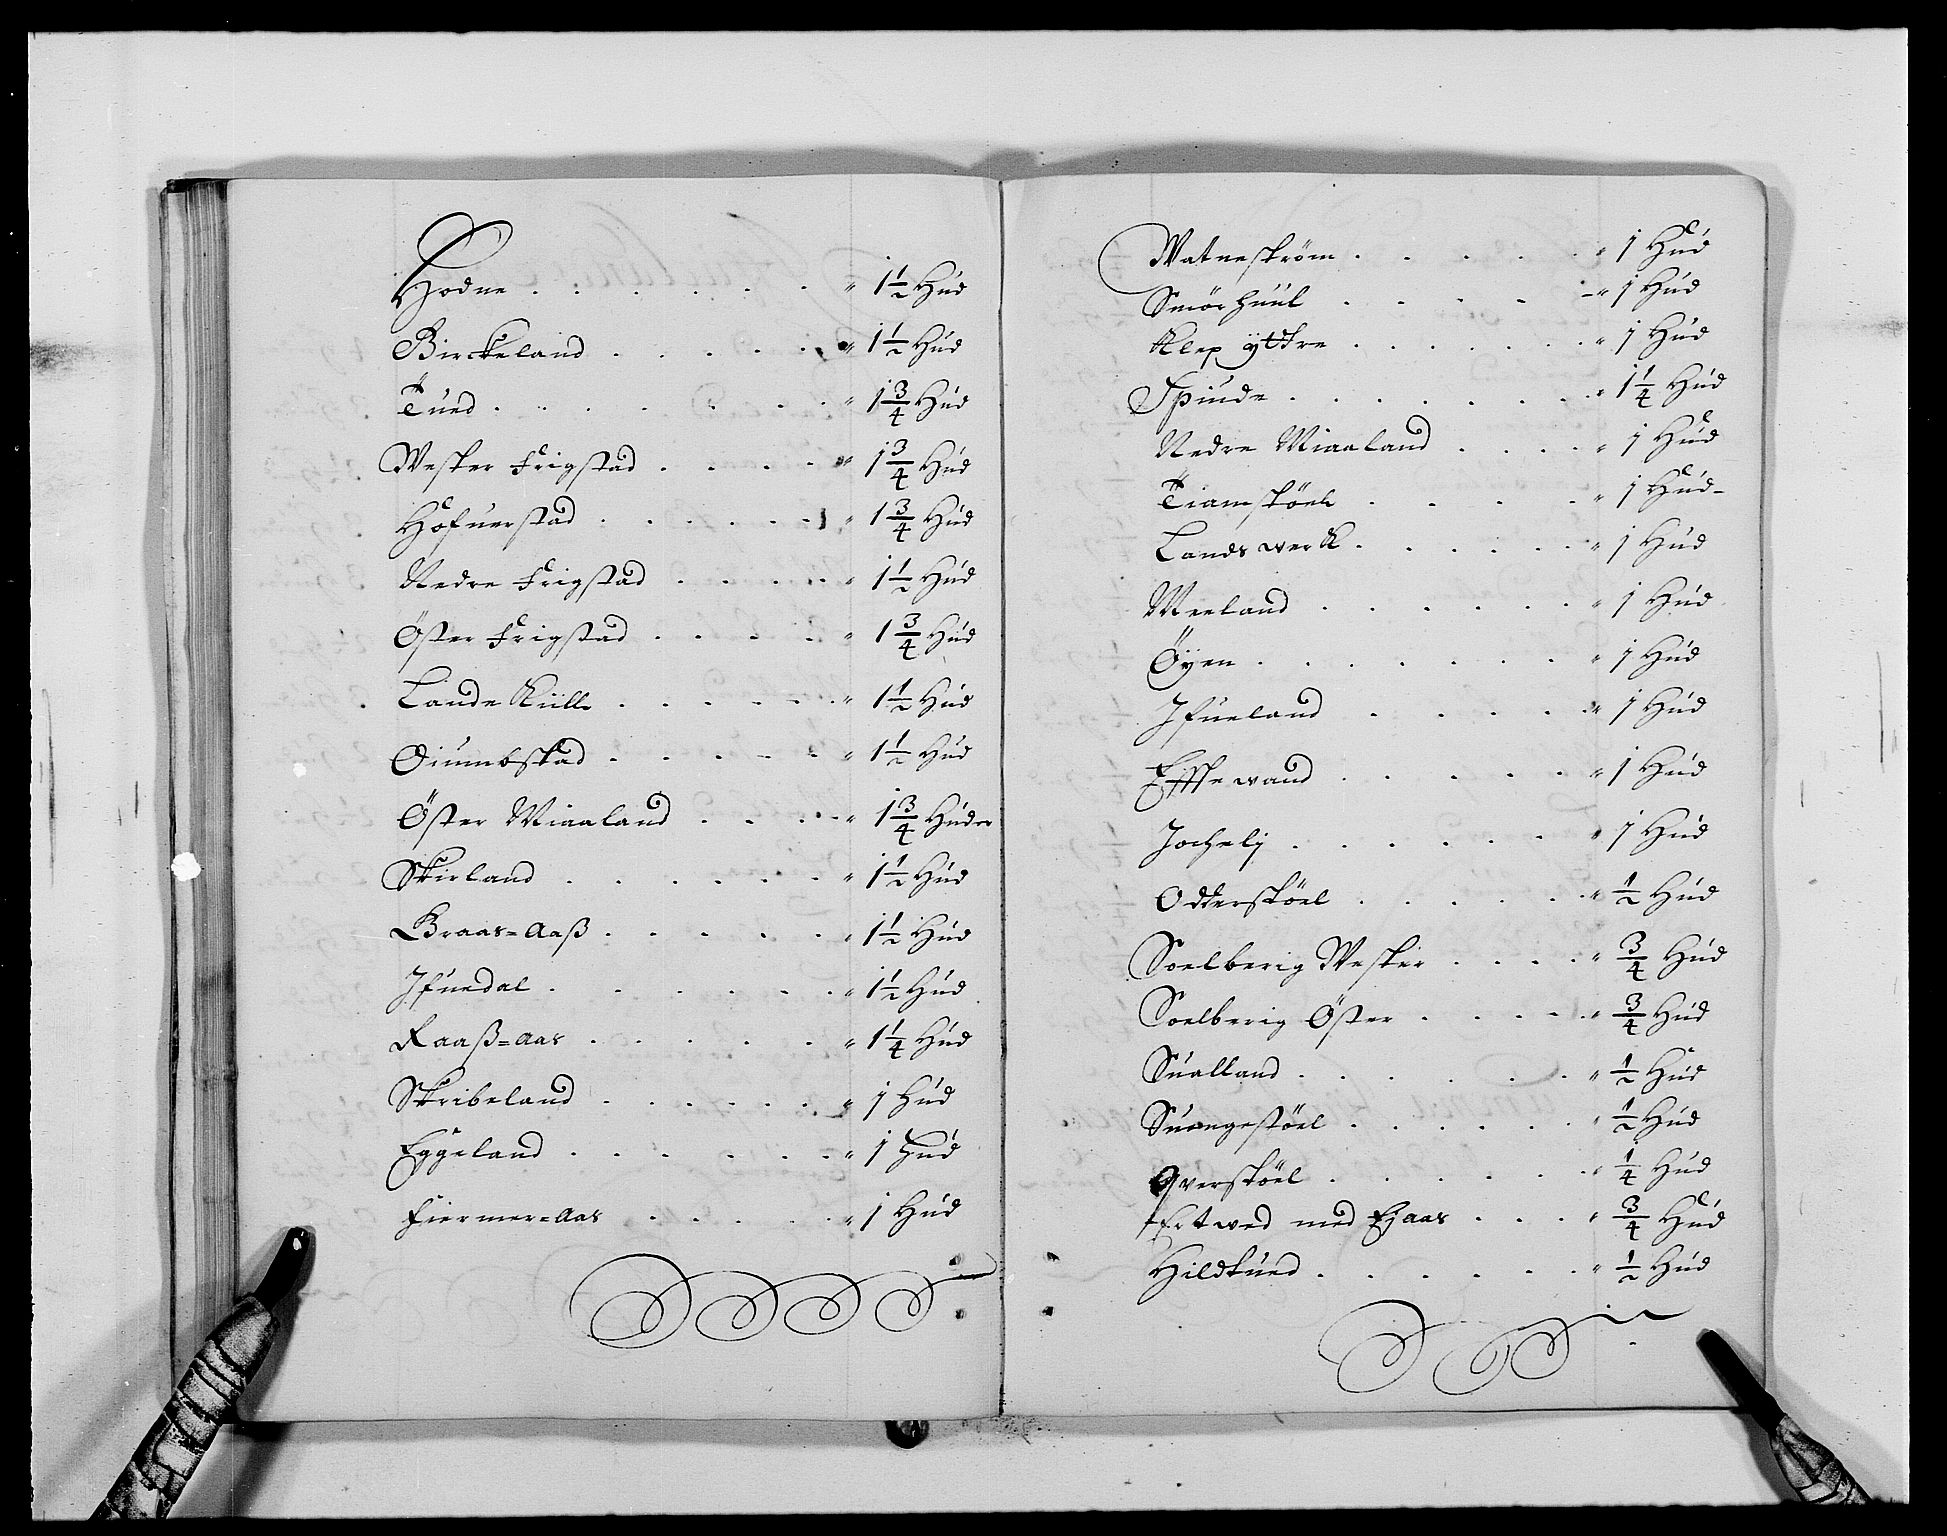 Hodne . . . . . . . " 1½ Hud
Birckeland . . . . . " 1½ Hud
Tued . . . . . . . " 1¾ Hud
Wester Frigstad . . . . " 1¾ Hud
Hofuerstad . . . . . . " 1¾ Hud
Nedre Frigstad . . . . " 1½ Hud
Öster Frigstad . . . . . " 1¾ Hud
Lande Kiill . . . . . . " 1½ Hud
Oiumbstad . . . . . " 1½ Hud
Öster Miaaland . . . . " 1¾ Huder
Skirland . . . . . . " 1½ Hud
Braas=Aaß . . . . . " 1½ Hud
Ifuedal . . . . . . " 1½ Hud
Raaß=Aas . . . . . " 1¼ Hud
Skribeland . . . . . . " 1 Hud
Eggeland . . . . . . " 1 Hud
Fiermer=Aas . . . . . " 1 Hud
Watneström . . . . . " 1 Hud
Smörhuul . . . . " 1 Hud
Klep yttre . . . . . . " 1 Hud
Spinde . . . . . . . " 1¼ Hud
Nedre Miaaland . . . . " 1 Hud
Tiamstöel . . . . " 1 Hud
Landswerk . . . . . " 1 Hud
Meeland . . . . . . " 1 Hud
Öyen . . . . . . . " 1 Hud
Ifueland . . . . . " 1 Hud
Eiffewand . . . . . " 1 Hud
Jochelj . . . . . . " 1 Hud
Odderstöel . . . . . " ½ Hud
Soelberig Wester . . . . " ¾ Hud
Soelberig Öster . . . . . " ¾ Hud
Sualland . . . . . . . " ½ Hud
Suangestöel . . . . . . " ½ Hud
Qverstöel . . . . . . " ¼ Hud
Ertwed med Ejaas . . . " ¾ Hud
Hildtued . . . . . . " ½ Hud